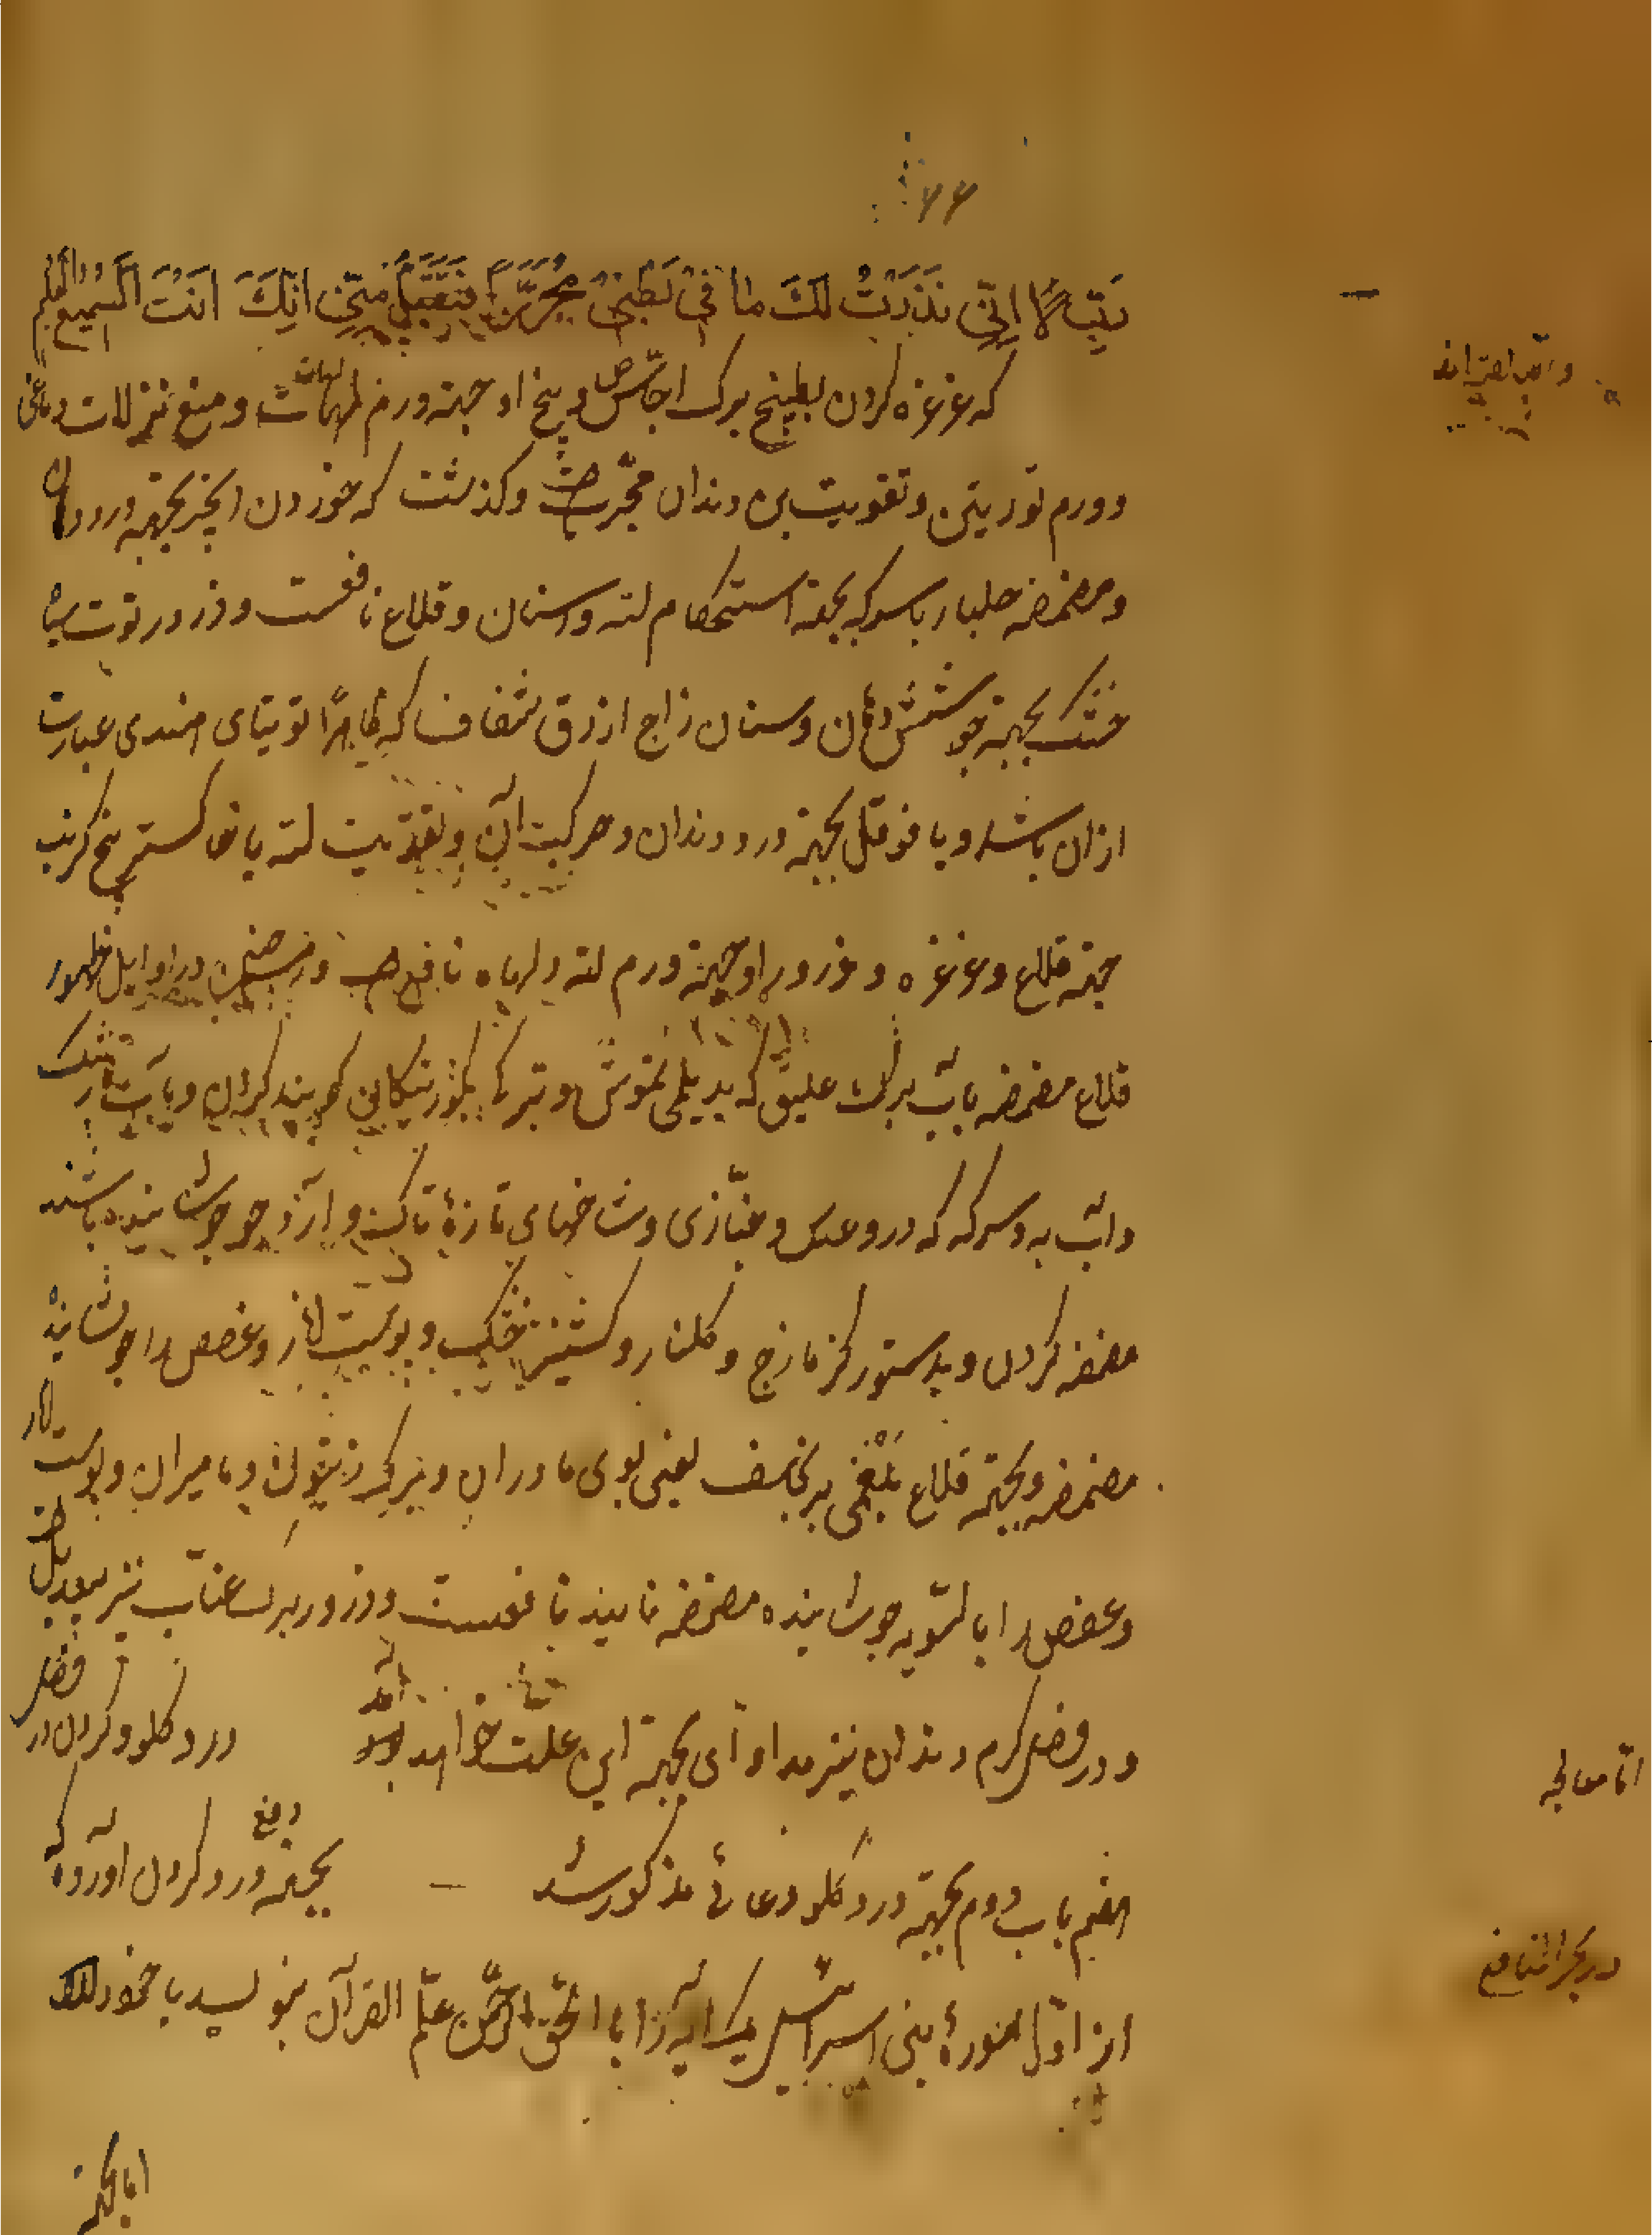 ۶۶
اِنِّی نَذَرْتُ لَكَ مَا فِی بَطْنِی مُحَرَّرًا فَتَقَبَّلْ مِنِّی اِنَّكَ اَنْتَ السَّمِیعُ العلیم
و امّا
که غرغره کردن بطبیخ برک اجاص و بیخ او جهته ورم لهات و منع نزلات دماغی
و ورم لوزیتین و تقویت بن دندان مجرب است و کذشت که خوردن انجیر بجهته درد دهان
و مضمضه جلنار با سرکه بجهته استحکام لثه و اسنان و قلاع نافعست و ذرور توت سیاه
خشک بجهته جوشش دهان و اسنان زاج ازرق شفاف که ظاهرًا توتیای هندی عبارت
ازان باشد و با فوفل بجهته درد دندان و حرکت آن و تقویت لثه با خاکستر بیخ کرنب
جهته قلاع و غرغره و ذرور او جهته ورم لثه و لهاه نافع است و در اوایل ظهور
قلاع مضمضه بآب برک علیق که بدیلمی تموش و بترکی کویند کردن و بآب
و آب به و سرکه که درو عدس و خبازی و شاخهای تازهٔ تاک و آرد جو جوشانیده باشند
مضمضه کردن و بدستور کزمازج و کلنار و کشنیز خشک و پوست انار و عفص را جوشانیده
مضمضه و بجهته قلاع بلغمی برنجاسف یعنی بوی مادران و برک زیتون و مامیران و پوست انار
و عفص را بالسّویه جوشانیده مضمضه نمایند نافعست و ذرور برک عناب نیز بیعدیل است
و در فصل کرم دندان نیز مداوای بجهته این علّت خواهد آمد فصل درد کلو و کردن در
امّا معالجه
هفتم باب دوم بجهته درد کلو دعائی مذکور شد بجهته دفع درد کردن آورده که
در بحر المنافع
از اوّل سورهٔ بنی اسرائیل یک آیه را با الحق الرحمن علّم القرآن بنویسد با خود
اما بجهته